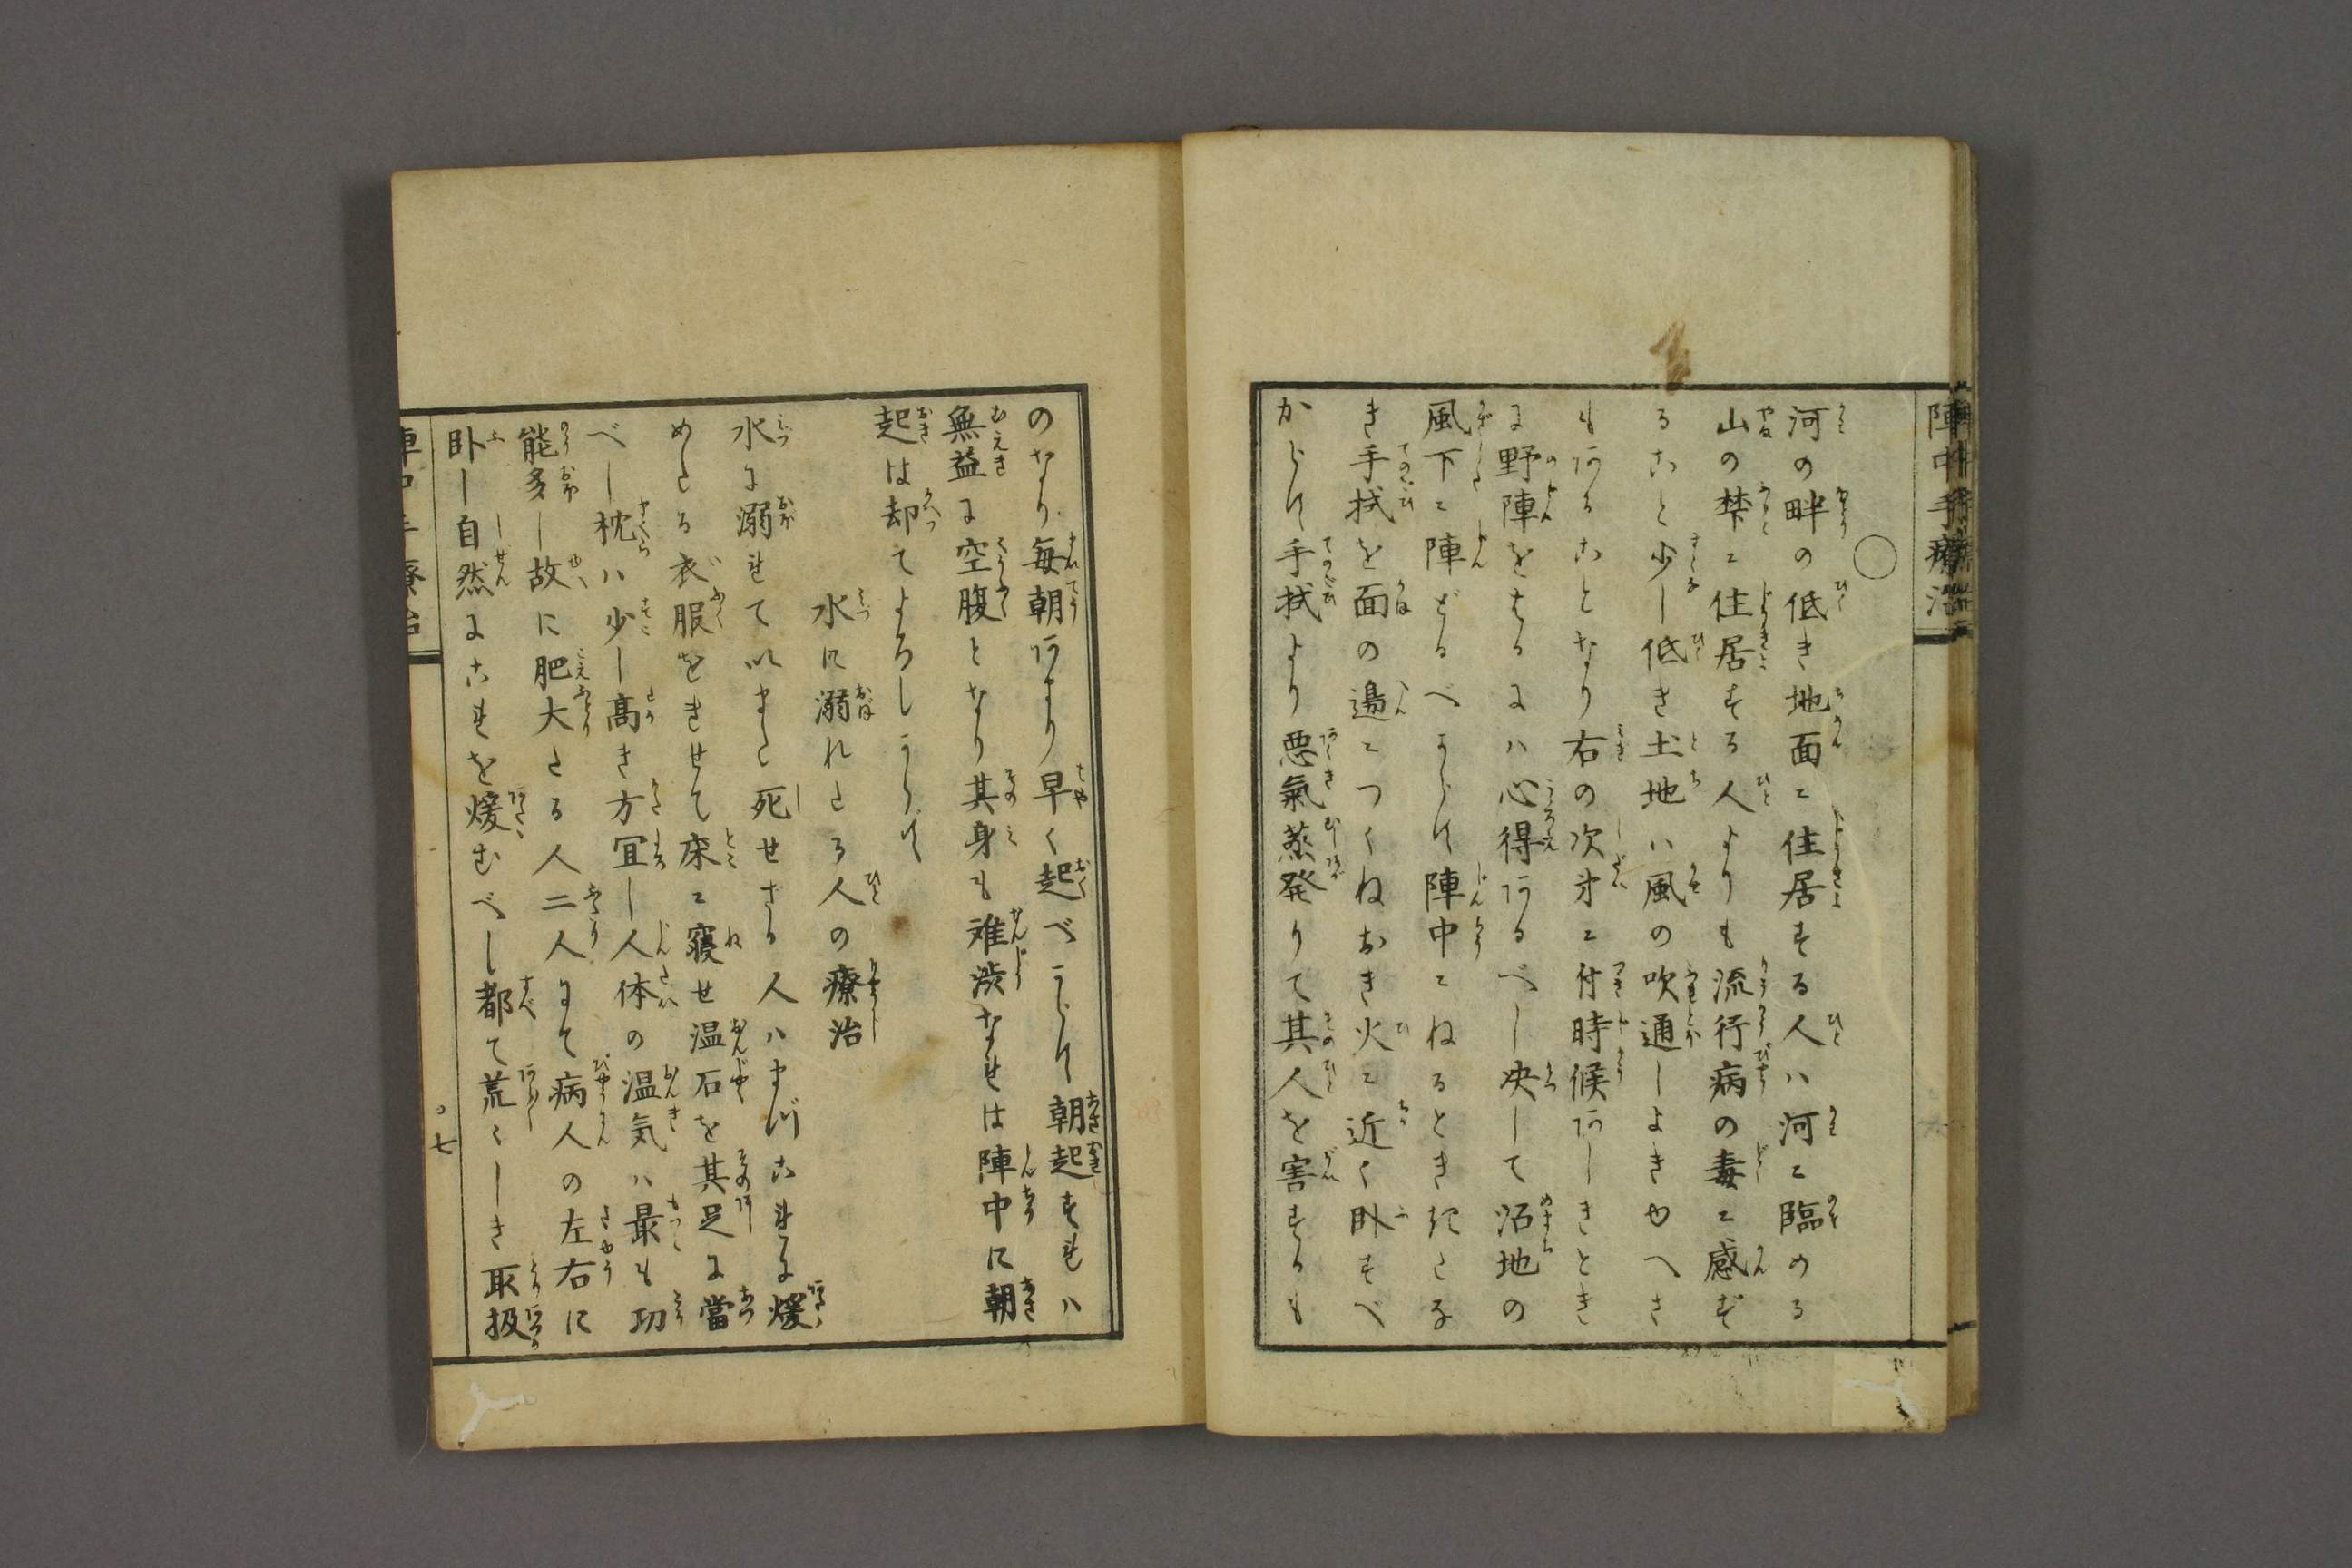 陣中手療治
〇
河の畔の低き地面に住居する人ハ河に臨める
山の禁に住居する人よりも流行病の毒に感ず
ること少し低き土地ハ風の吹通しよきゆへさ
もあることなり右の次第に付時候あしきとき
に野陣をするにハ心得あるべし决して沼地の
風下に陣どるべからず陣中にねるときぬたる
き手拭を面の邉につくねおき火に近く臥すべ
からず手拭より悪氣蒸発りて其人を害するも
のなり毎朝あまり早く起べからず朝起すれハ
無益に空腹となり其身も难渋なれは陣中に朝
起は却てよろしからず
水に溺れたる人の療治
水に溺れていまた死せさる人ハまづこれを煖
めたる衣服をきせて床に寝せ温石を其足に當
べし枕ハ少し髙き方冝し人体の温気ハ最も功
能多し故に肥大たる人二人にて病人の左右に
臥し自然にこれを煖むべし都て荒々しき取扱
陣中手療治
〇七